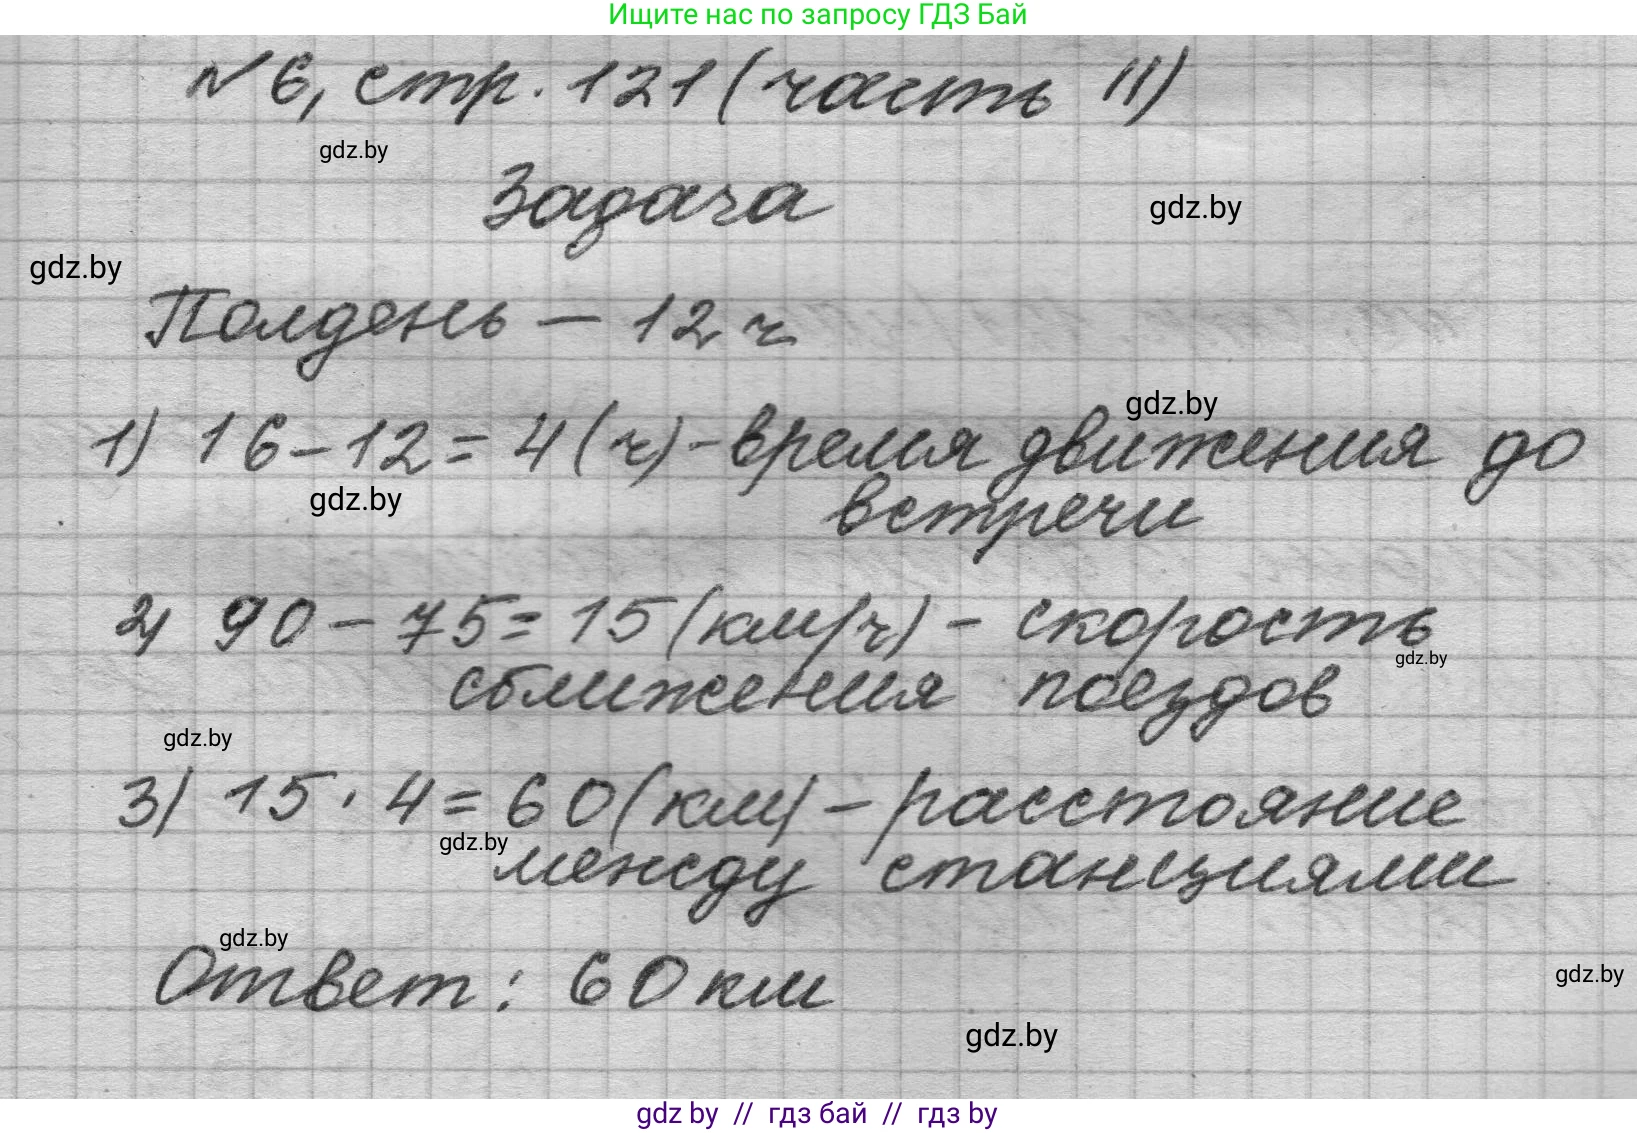 Ищите нас по запросу ГДЗ Бай
№6, стр. 121 (часть II)
gdz.by
Задача
gdz.by
gdz.by
Полдень – 12 ч
gdz.by
1) 16 – 12 = 4 (ч) – время движения до
gdz.by
встречи
2) 90 – 75 = 15 (км/ч) – скорость
gdz.by
сближения поездов
gdz.by
3) 15 · 4 = 60 (км) – расстояние
gdz.by
между станциями
gdz.by
Ответ: 60 км
gdz.by
gdz.by
gdz by // гдз бай // гдз by